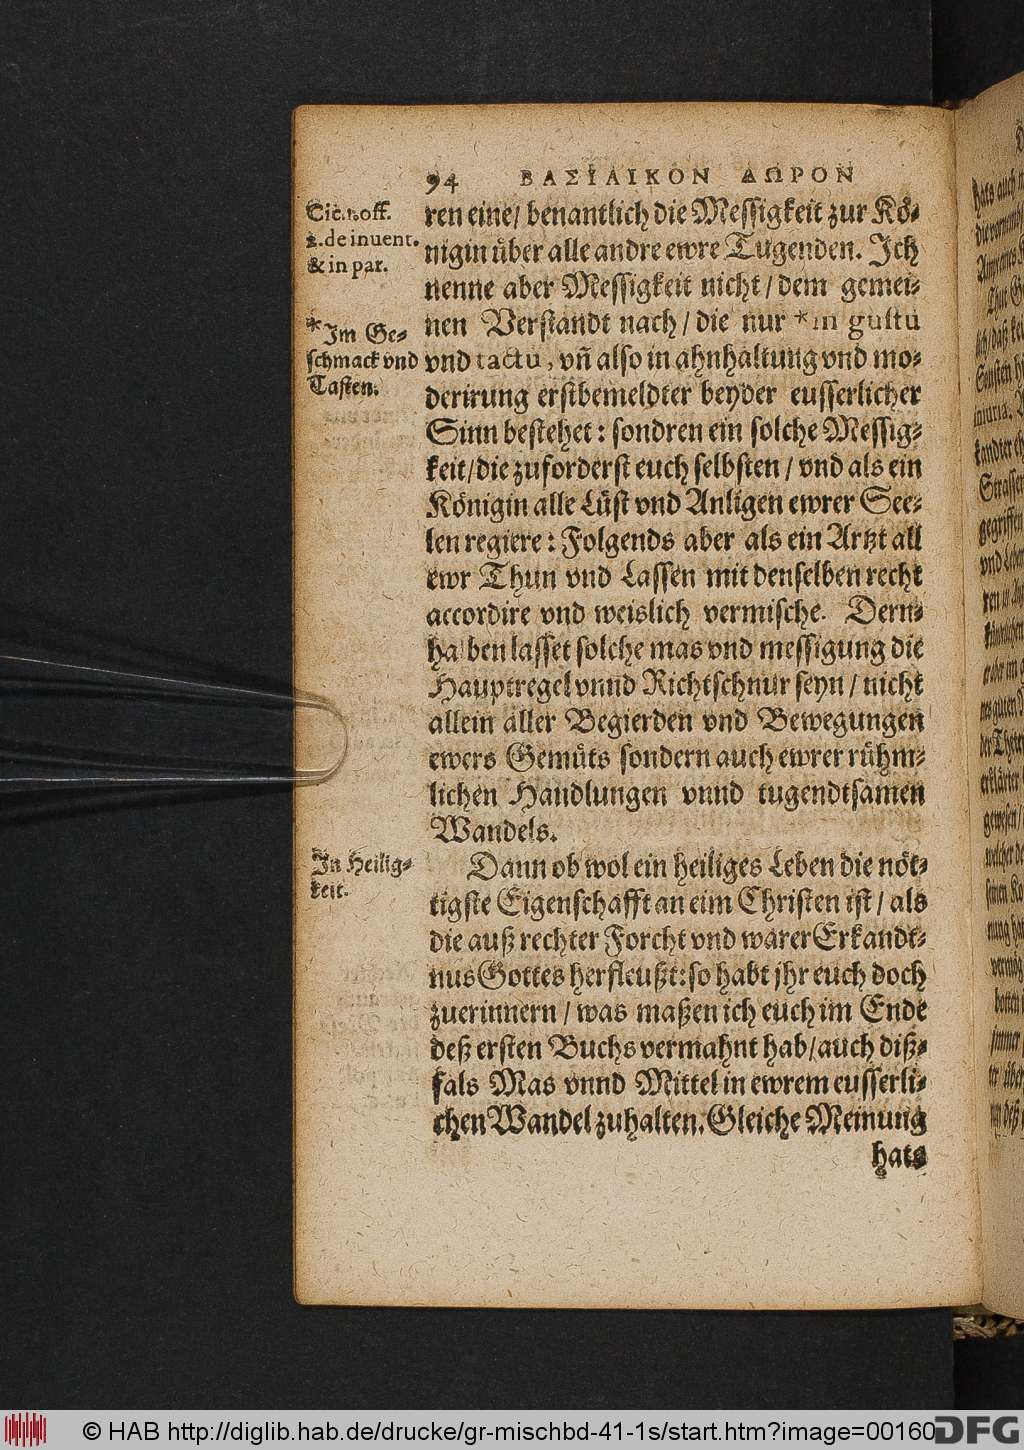 94 ΒΑΣΙΛΙΚΟΝ ΔΩΡΟΝ
Cic. 1. off.
2. de inuent.
& in par.
*Im Ge⸗
schmack vnd
Tasten.
ren eine/ benantlich die Messigkeit zur Kö⸗
nigin über alle andre ewre Tugenden. Ich
nenne aber Messigkeit nicht/ dem gemei⸗
nen Verstandt nach/ die nur *in gustu
vnd tactu, vñ also in ahnhaltung vnd mo⸗
derirung erstbemeldter beyder eusserlicher
Sinn bestehet: sondren ein solche Messig⸗
keit/ die zuforderst euch selbsten/ vnd als ein
Königin alle Lüst vnd Anligen ewrer See⸗
len regiere: Folgends aber als ein Artzt all
ewr Thun vnd Lassen mit denselben recht
accordire vnd weislich vermische. Dern⸗
haben lasset solche mas vnd messigung die
Hauptregel vnnd Richtschnur seyn/ nicht
allein aller Begierden vnd Bewegungen
ewers Gemüts sondern auch ewrer rühm⸗
lichen Handlungen vnnd tugendtsamen
Wandels.
In Heilig⸗
keit.
Dann ob wol ein heiliges Leben die nöt⸗
tigste Eigenschafft an eim Christen ist/ als
die auß rechter Forcht vnd warer Erkandt⸗
nus Gottes herfleußt: so habt jhr euch doch
zuerinnern/ was maßen ich euch im Ende
deß ersten Buchs vermahnt hab/ auch diß⸗
fals Mas vnnd Mittel in ewrem eusserli⸗
chen Wandel zuhalten. Gleiche Meinung
hats
© HAB http://diglib.hab.de/drucke/gr-mischbd-41-1s/start.htm?image=00160
DFG